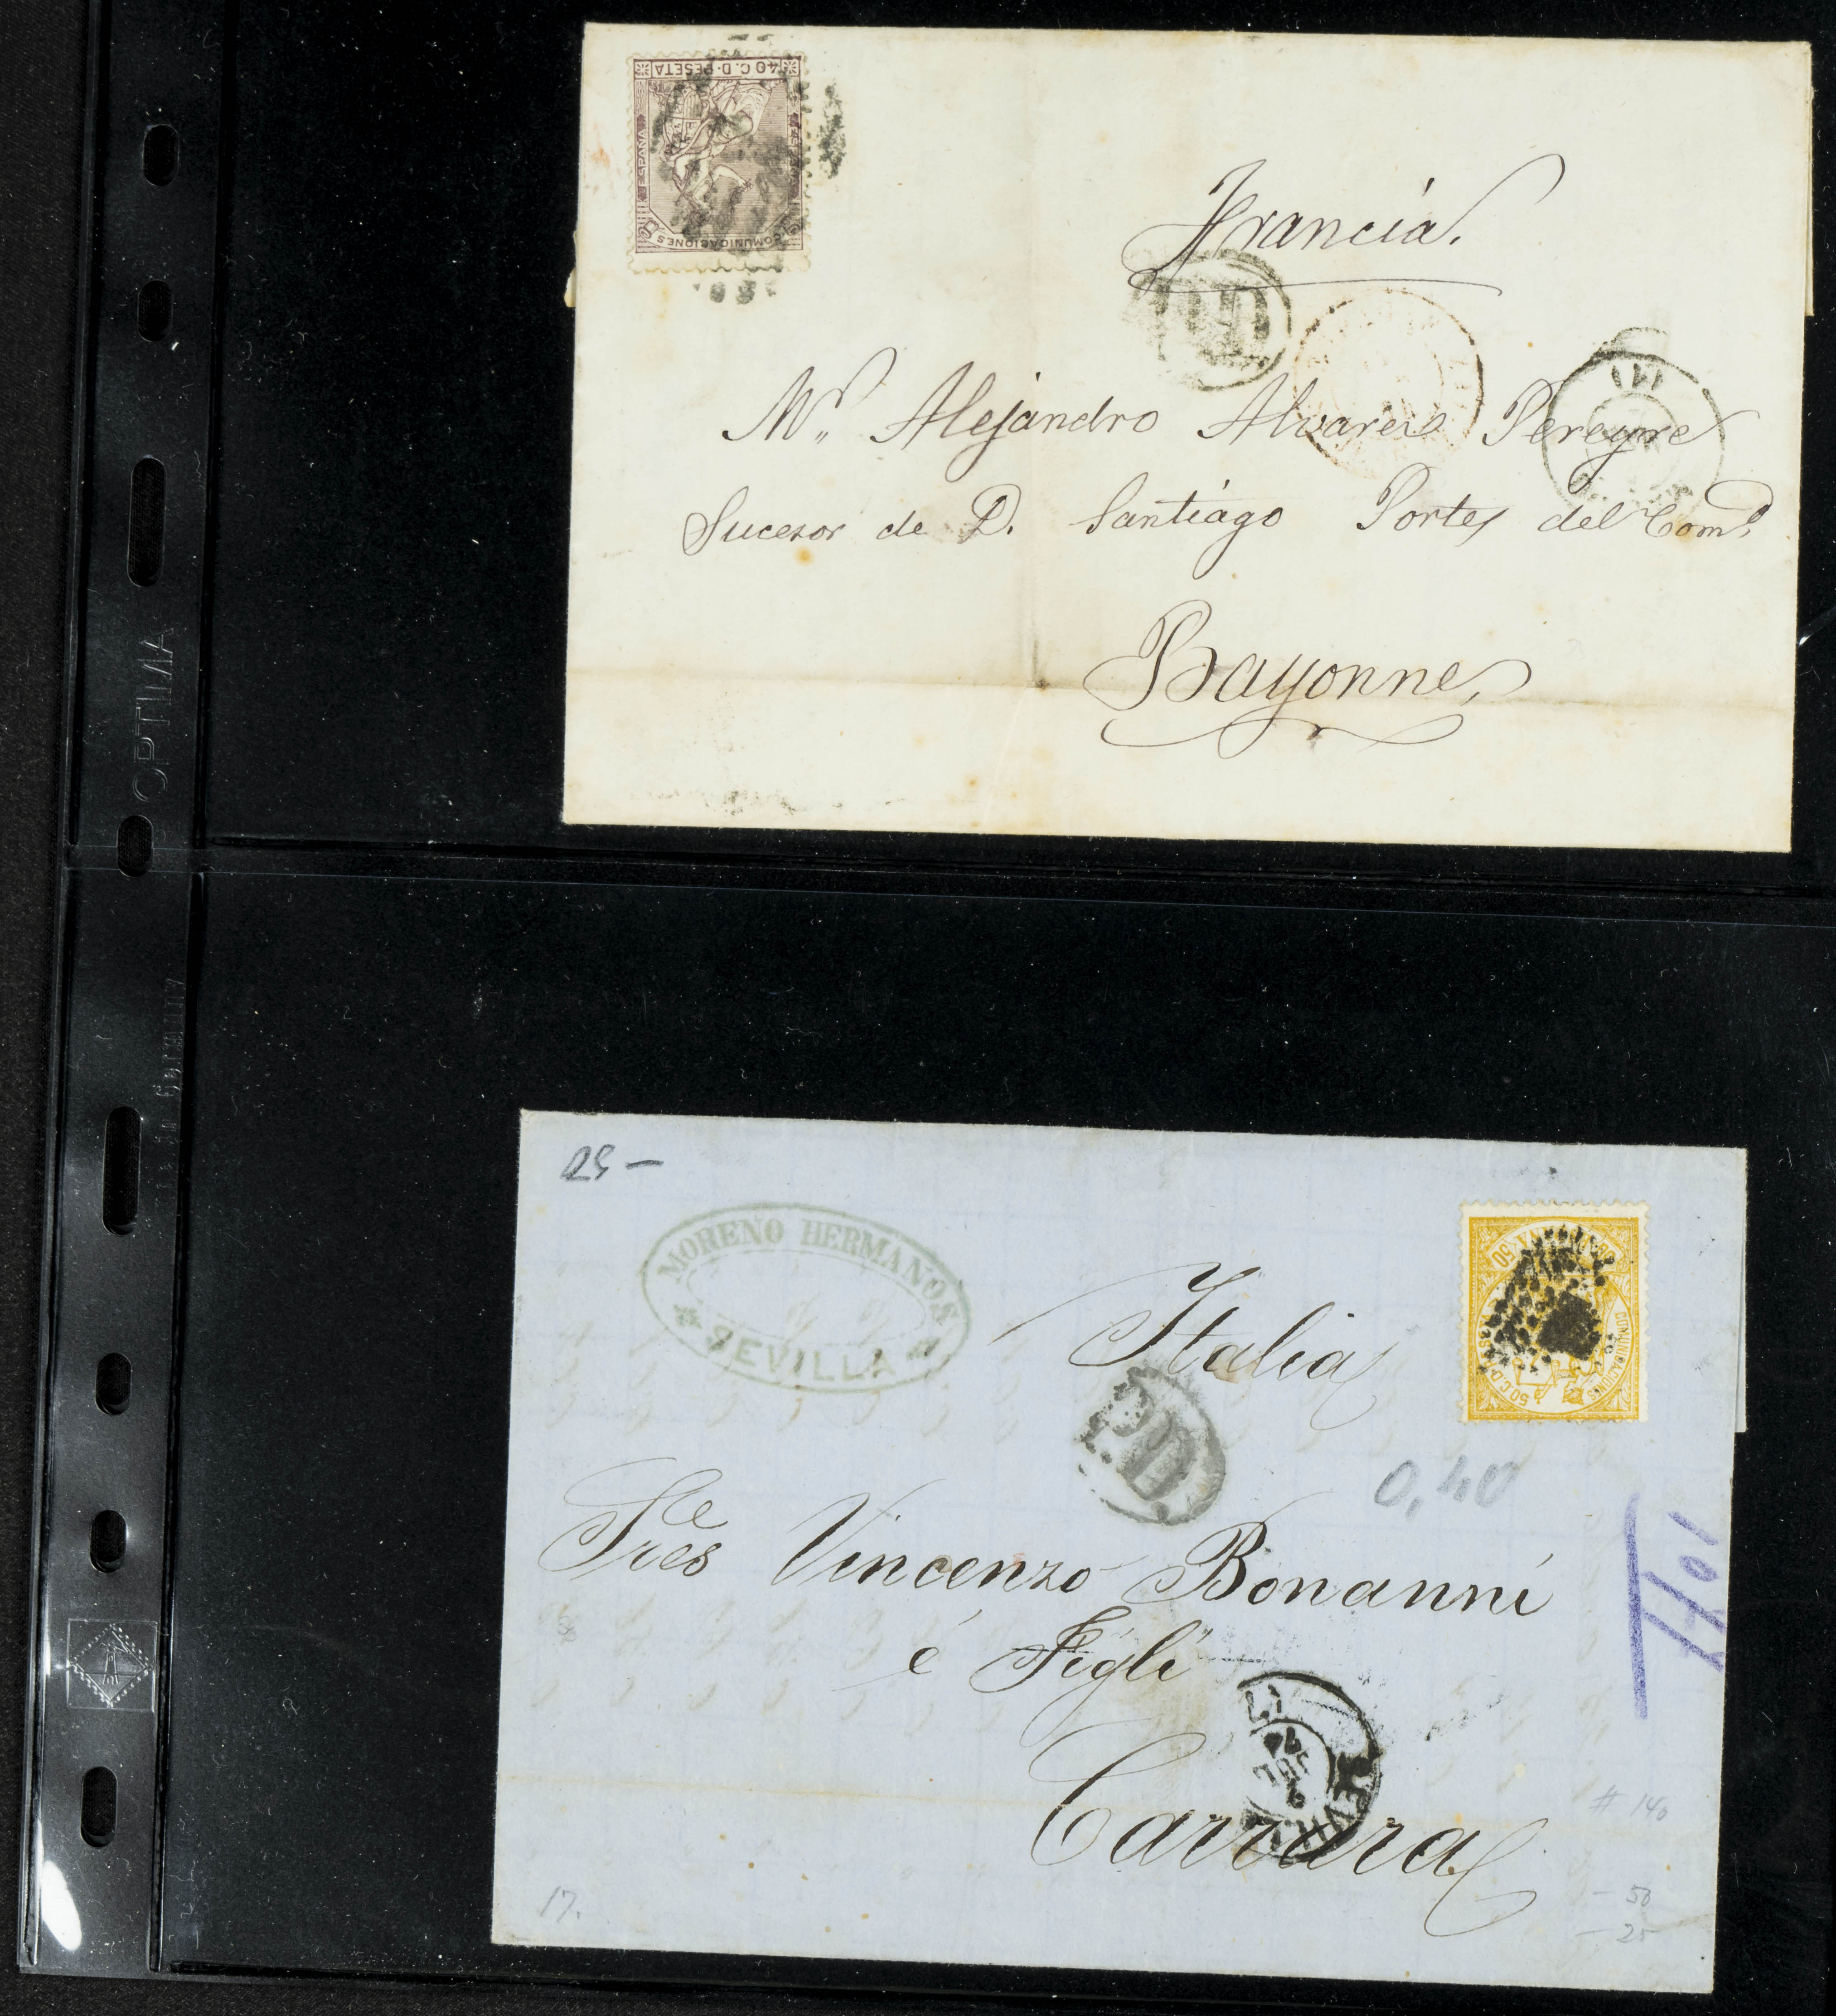 40 C. D. PESETA
ESPAÑA
COMUNICACIONES
Francia.
P.D.
Mr. Alejandro Alvares Pereyre
Sucesor de D. Santiago Portes del Como
Bayonne,
OPTIMA
Germany
25 -
MORENO HERMANOS
SEVILLA
COMUNICACIONES
50 C. D.
50
Italia
P.D.
0,40
Sres Vincenzo Bonanni
é Figli
SEVILLA
74
Carrara
# 140
- 50
- 25
17.